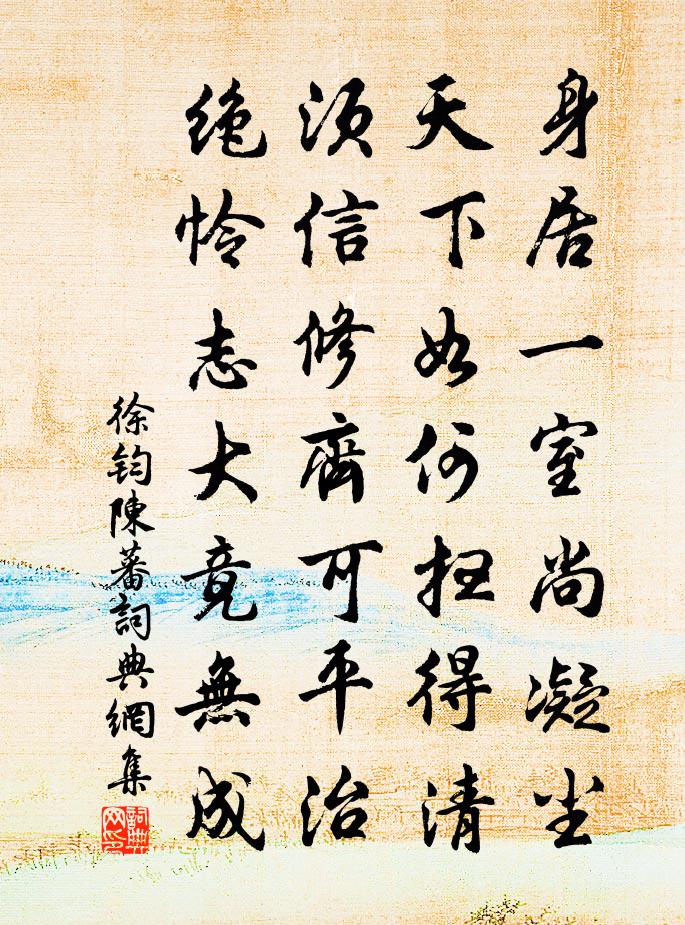 身居一室尚凝尘
天下如何扫得清
须信修齊可平治
绝怜志大竟無成
徐钧陳蕃詞典網集
詞典网印